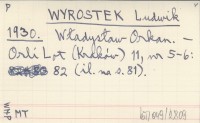 P
WYROSTEK Ludwik
1930. Władysław Orkan. —
Orli Lot (Kraków) 11, nr 5-6:
82 (il. na s. 81).
WMP
MT